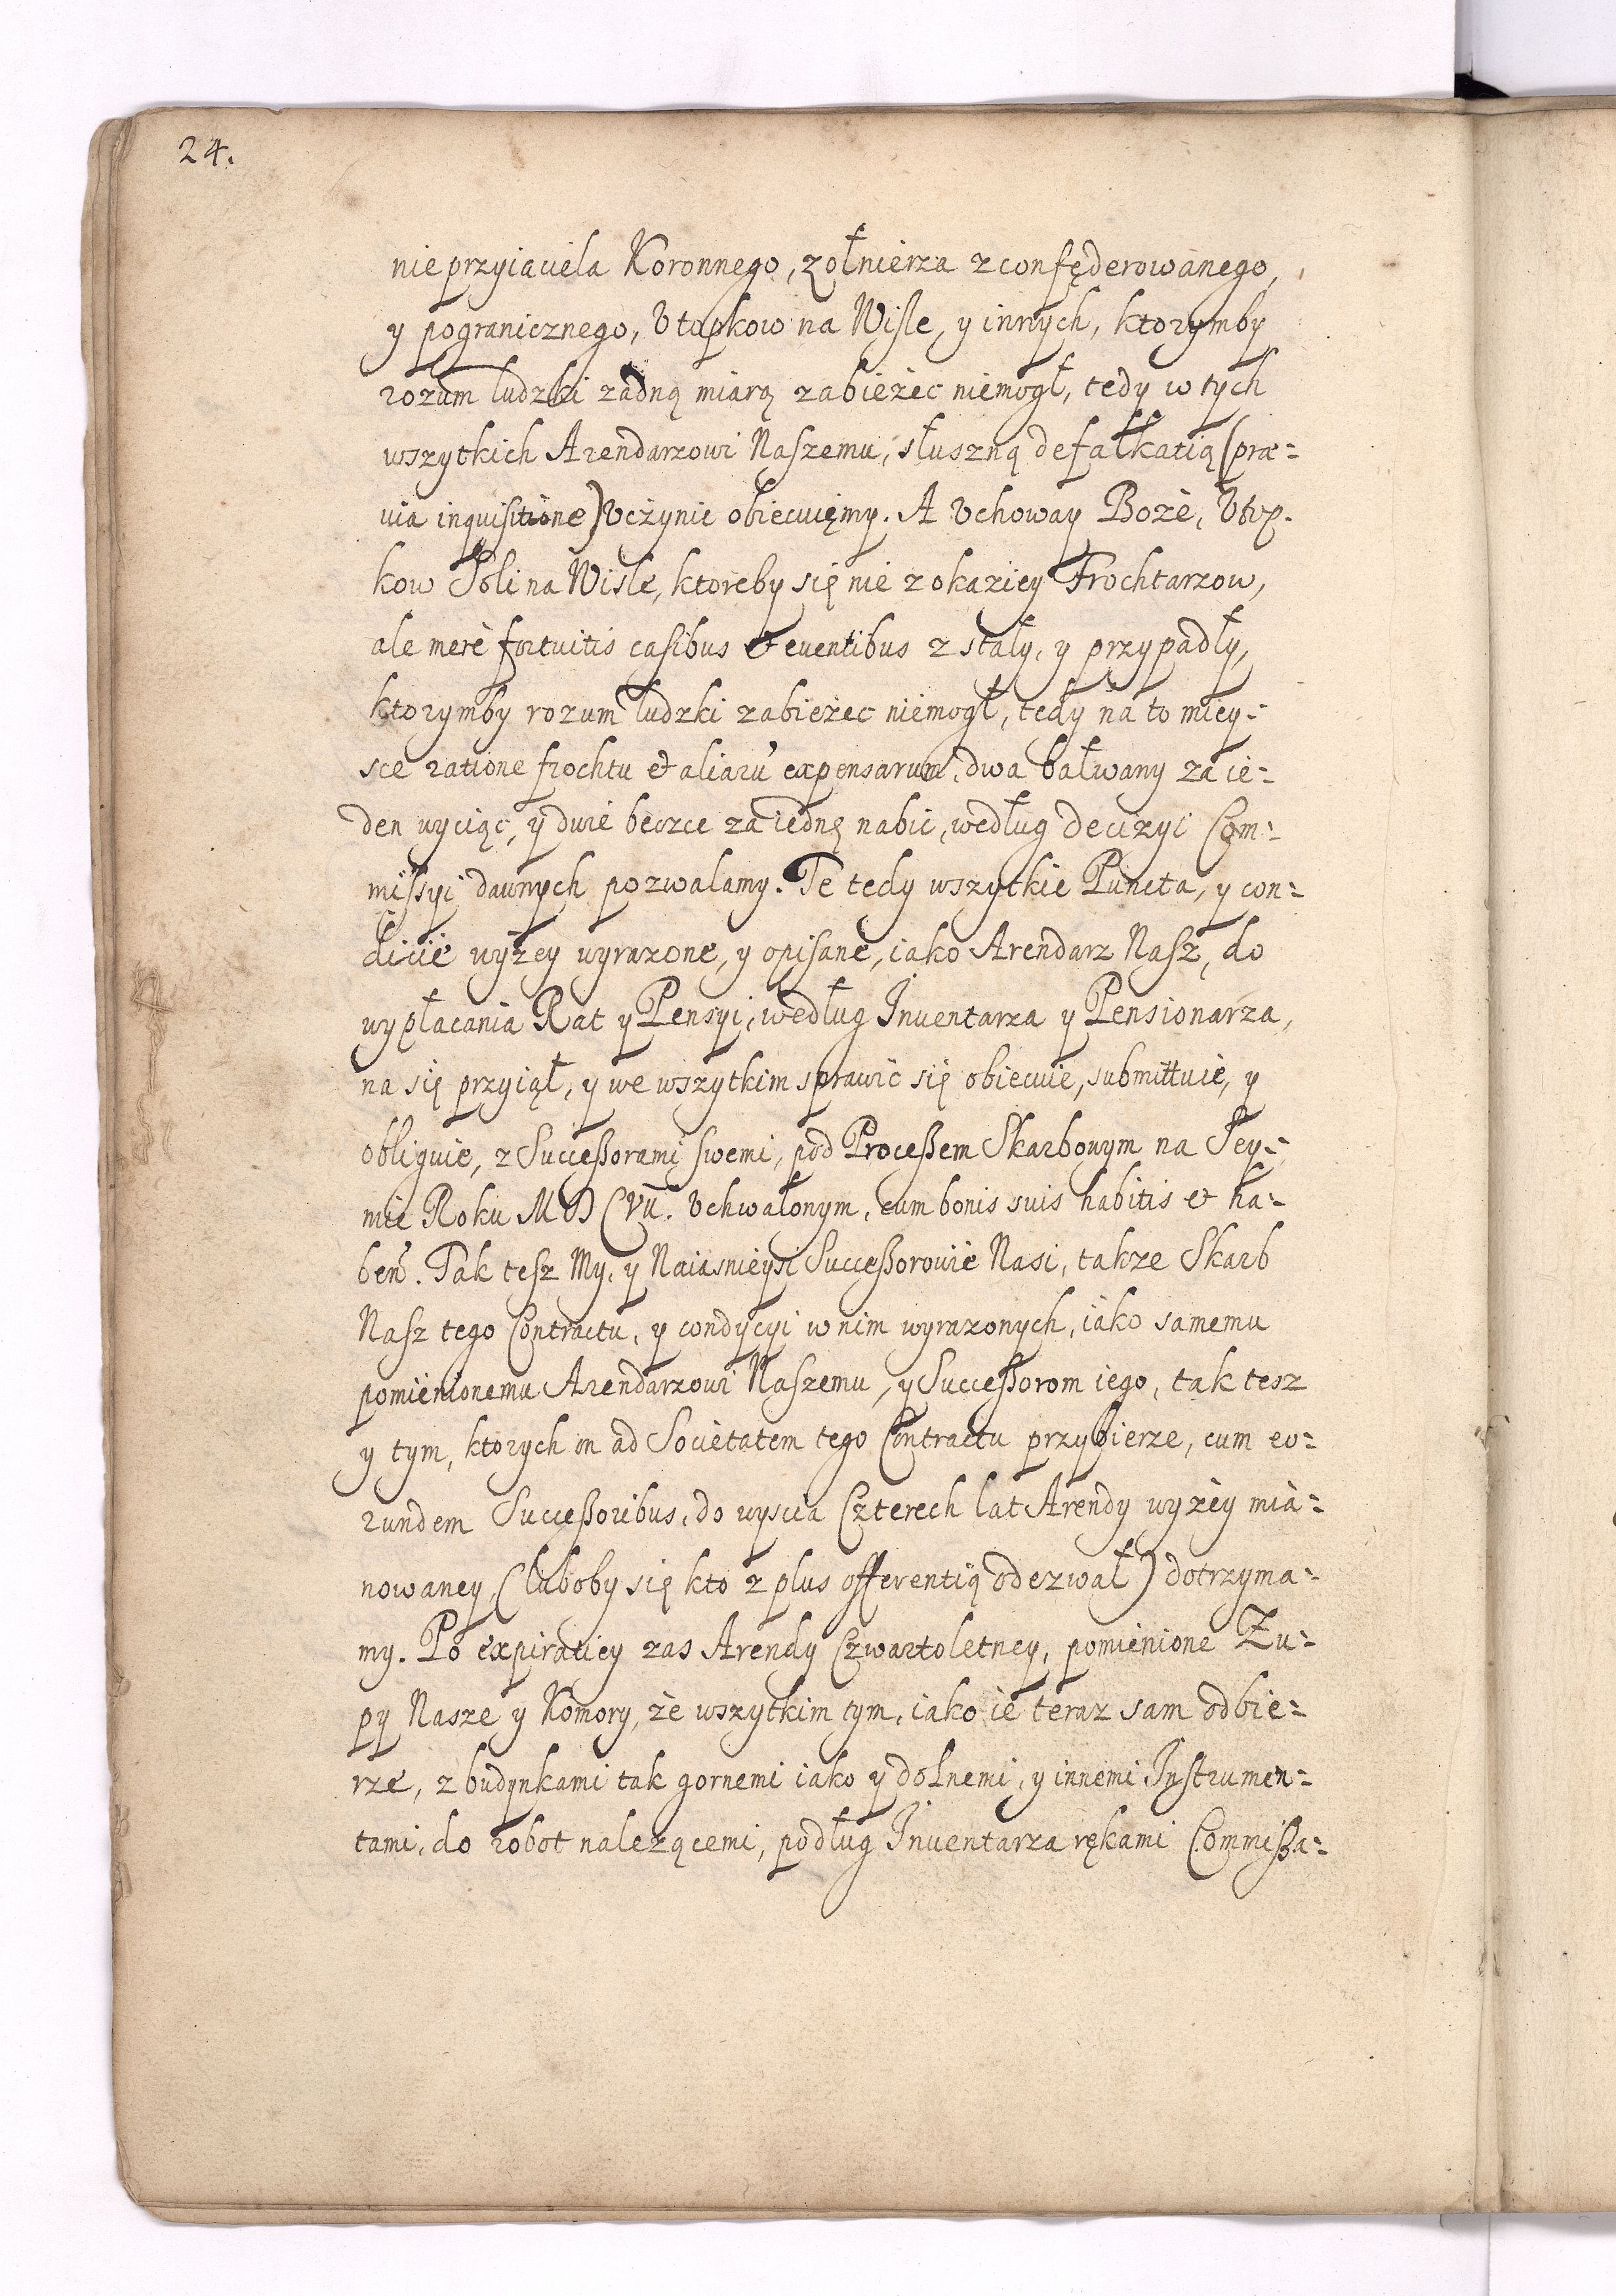 24.
nieprzyiaciela Koronnego, zołnierza zconfęderowanego,
y pogranicznego, Utopkow na Wisle, y innych, ktorymby
rozum ludzki zadną miarą zabieżec niemogł, tedy w tych
wszytkich Arendarzowi Naszemu, słuszną defalkatią (præ=
via inquisitione) Vczynic obiecuięmy. A Vchoway Boże, Vtop.
kow Soli na Wisle, ktoreby się nie z okaziey Frochtarzow,
ale merè fortuitis casibus et euentibus z stały, y przypadły,
ktorymby rozum ludzki zabieżec niemogł, tedy na to miey=
sce ratione frochtu et aliarũ expensarum, dwa bałwany za ie=
den wyciąc, y dwie beczce za iednę nabic, według decizyi Com=
missyi dawnych pozwalamy. Te tedy wszytkie Puncta, y con=
dicie wyżey wyrazone, y opisane, iako Arendarz Nasz, do
wypłacania Rat y Pensyi, według Inuentarza y Pensionarza,
na się przyiął, y we wszytkim sprawic się obiecuie, submittuie, y
obliguie, z Successorami swemi, pod Processem Skarbowym na Sey=
mie Roku MDCVII. Vchwalonym, cum bonis suis habitis et ha=
beñ. Tak tesz My, y Naiasnieysi Successorowie Nasi, takze Skarb
Nasz tego Contractu, y condycyi w nim wyrazonych, iako samemu
pomienionemu Arendarzowi Naszemu, y Successorom iego, tak tesz
y tym, ktorych on ad Societatem tego Contractu przybierze, cum eo=
rundem Successoribus, do wyscia Czterech lat Arendy wyżey mia=
nowaney, (luboby się kto z plus offerentią odezwał) dotrzyma=
my. Po expiratiey zas Arendy Czwartoletney, pomienione Zu=
py Nasze y Komory, że wszytkim tym, iako ie teraz sam odbie=
rze, z budynkami tak gornemi iako y dolnemi, y innemi Instrumen=
tami, do robot nalezącemi, podług Inuentarza rękami Commissa=